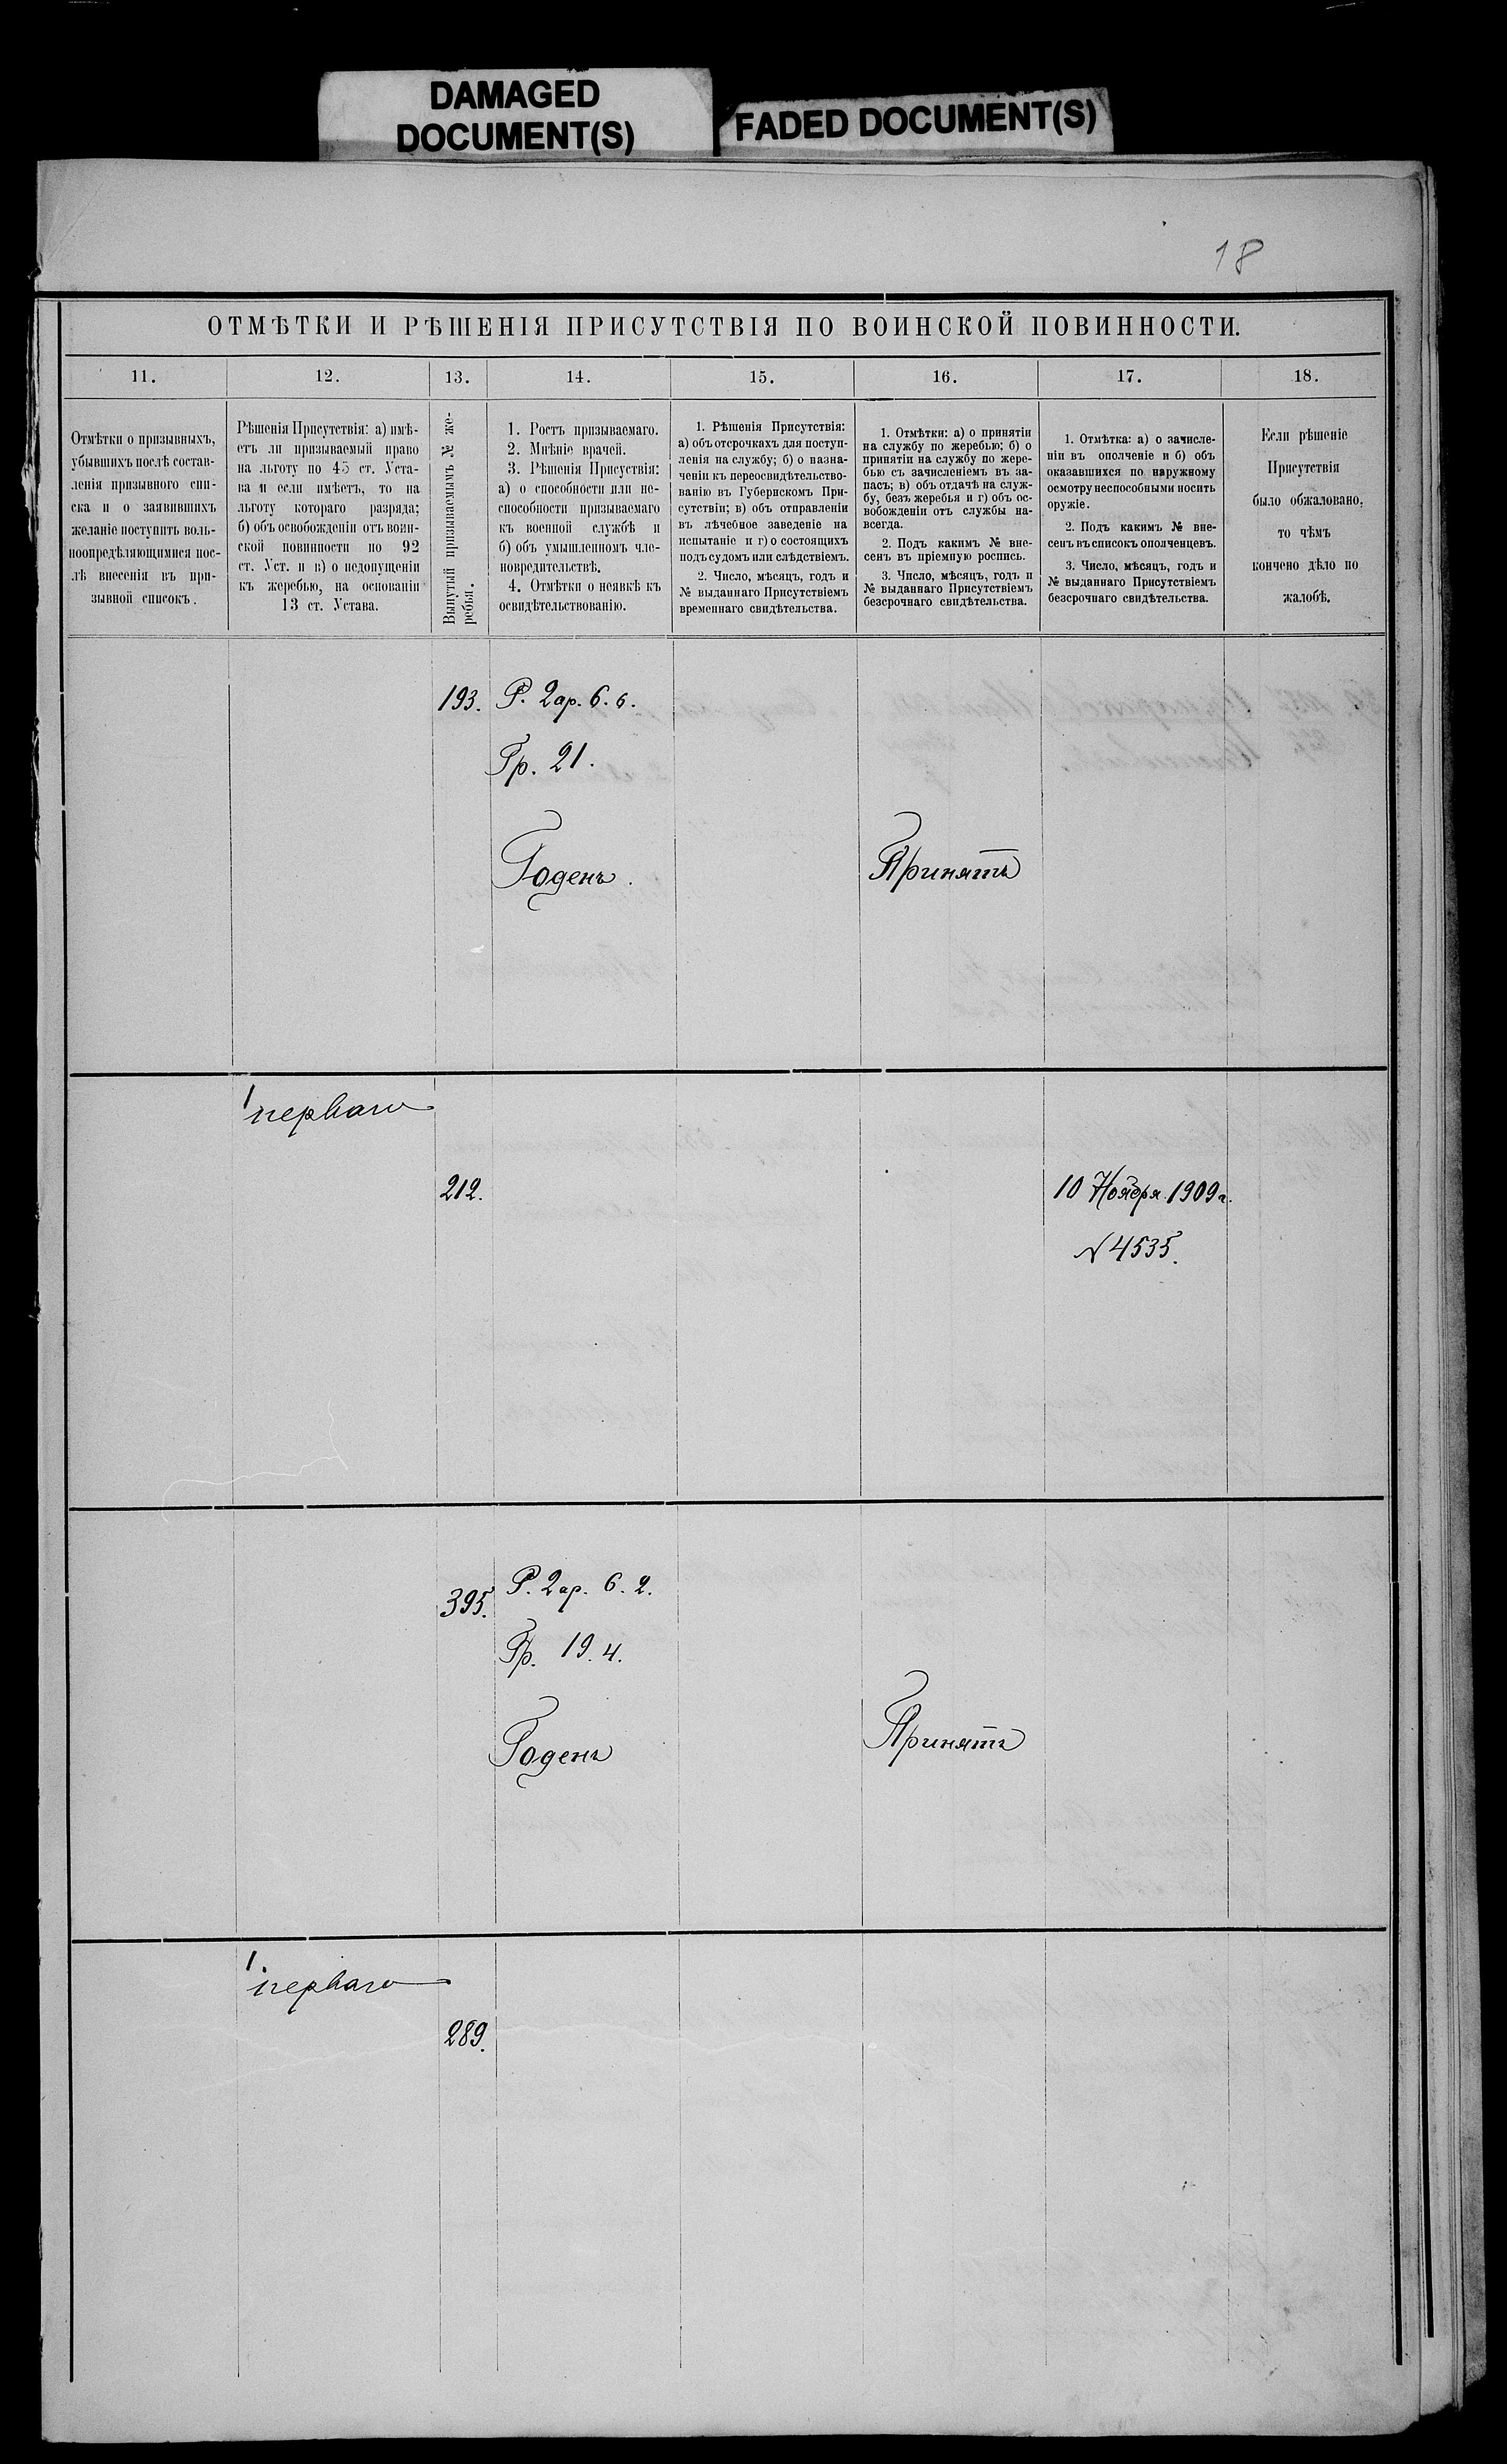 DAMAGED
DOCUMENT(S)
FADED DOCUMENT(S)
18
ОТМѢТКИ И РѢШЕНІЯ ПРИСУТСТВІЯ ПО ВОИНСКОЙ ПОВИННОСТИ.
11.
12.
13.
14.
15.
16.
17.
18.
Отмѣтки о призывныхъ,
убывшихъ послѣ состав-
ленія призывного спи-
ска и о заявившихъ
желаніе поступить воль-
ноопредѣляющимися пос-
лѣ внесенія въ при-
зывной списокъ.
Рѣшенія Присутствія: а) имѣ-
етъ ли призываемый право
на льготу по 45 ст. Уста-
ва и если имѣетъ, то на
льготу котораго разряда;
б) объ освобожденіи отъ воин-
ской повинности по 92
ст. Уст. и в) о недопущеніи
къ жеребью, на основаніи
13 ст. Устава.
Вынутый призываемымъ № же-
ребья.
1. Ростъ призываемаго.
2. Мнѣніе врачей.
3. Рѣшенія Присуствія:
а) о способности или не-
способности призываемаго
къ военной службѣ и
б) объ умышленномъ чле-
новредительствѣ.
4. Отмѣтки о неявкѣ къ
освидѣтельствованію.
1. Рѣшенія Присутствія:
а) объ отсрочкахъ для поступ-
ленія на службу; б) о назна-
ченіи къ переосвидѣтельство-
ванію въ Губернскомъ При-
сутствіи; в) объ отправленіи
въ лѣчебное заведеніе на
испытаніе и г) о состоящихъ
подъ судомъ или слѣдствіемъ.
2. Число, мѣсяцъ, годъ и
№ выданнаго Присутствіемъ
временнаго свидѣтельства.
1. Отмѣтки: а) о принятіи
на службу по жеребью; б) о
принятіи на службу по жере-
бью съ зачисленіемъ въ за-
пасъ; в) объ отдачѣ на служ-
бу, безъ жеребья и г) объ ос-
вобожденіи отъ службы на-
всегда.
2. Подъ какимъ № вне-
сенъ въ пріемную роспись.
3. Число, мѣсяцъ, годъ и
№ выданнаго Присутствіемъ
безсрочнаго свидѣтельства.
1. Отмѣтка: а) о зачисле-
ніи въ ополченіе и б) объ
оказавшихся по наружному
осмотру неспособными носить
оружіе.
2. Подъ какимъ № вне-
сенъ въ списокъ ополченцевъ.
3. Число, мѣсяцъ, годъ и
№ выданнаго Присутствіемъ
безсрочнаго свидѣтельства.
Если рѣшеніе
Присутствія
было обжаловано,
то чѣмъ
кончено дѣло по
жалобѣ.
193.
Р. 2 ар. 6. 6.
Гр. 21.
Годенъ.
Принятъ
1
перваго
212.
10 Ноября 1909 г.
N 4535.
395.
Р. 2 ар. 6. 2.
Гр. 19. 4.
Годенъ
Принятъ
1.
перваго
289.